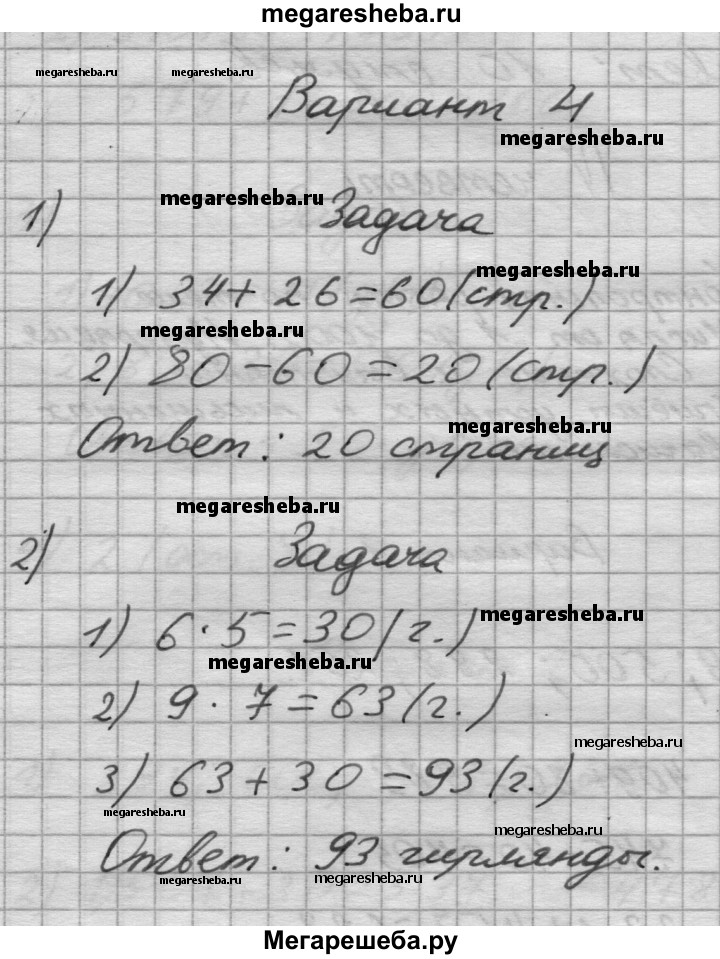 megaresheba.ru
megaresheba.ru megaresheba.ru
Вариант 4
megaresheba.ru
megaresheba.ru
1) Задача
megaresheba.ru
1) 34+26=60(стр.)
megaresheba.ru
2) 80-60=20(стр.)
megaresheba.ru
Ответ: 20 страниц
megaresheba.ru
2) Задача
megaresheba.ru
1) 6·5=30(г.)
megaresheba.ru
2) 9·7=63(г.)
megaresheba.ru
3) 63+30=93(г.)
megaresheba.ru
megaresheba.ru
Ответ: 93 гирлянды.
megaresheba.ru megaresheba.ru
Мегарешеба.ру